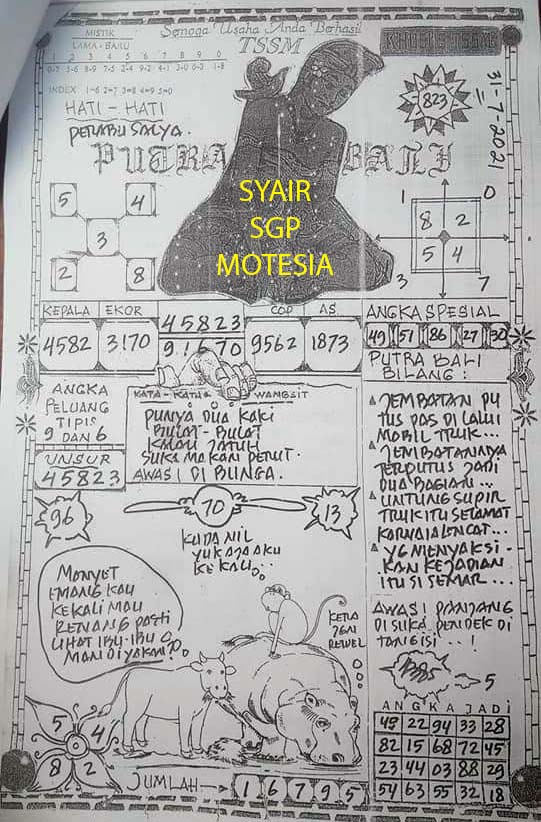 MISTIK
LAMA - BARU
1 2 3 4 5 6 7 8 9 0
Semoga Usaha Anda Berhasil
TSSM
INDEX 1=6 2=7 3=8 4=9 5=0
HATI - HATI
823
31-7-2021
PUTRA BALI
5 4
3
2 8
SYAIR
SGP
MOTESIA
1 0
8 2
5 4
3 7
KEPALA EKOR
4582 3170
45823
91670
COP AS
9562 1873
ANGKA SPESIAL
49 51 86 27 30
PUTRA BALI
BILANG :
ANGKA
PELUANG
TIPIS
9 DAN 6
UNSUR
45823
KATA - KATA WANGSIT
PUNYA DUA KAKI
BULAT - BULAT
KALAU JATUH
SUKA MAKAN PERUT.
AWAS! DI BUNGA.
JEMBATAN PU
TUS PAS DI LALUI
MOBIL TRUK...
JEMBATANNYA
TERPUTUS JADI
DUA BAGIAN...
UNTUNG SUPIR
TRUK ITU SELAMAT
...
YG MENYAKSI-
KAN KEJADIAN
ITU SI SEMAR...
AWAS! PANJANG
DI SUKA PENDEK DI
TANGISI..!
5
96
70
13
KUDA NIL
YUK AJA AKU
KE KALI...
MONYET
EMANG KAU
KE KALI MAU
RENANG PASTI
LIHAT IBU-IBU
MANDI YA KAN?
5 4
8 2
JUMLAH → 1 6 7 9 5
ANGKA JADI
49 22 94 33 28
82 15 68 72 45
23 44 03 88 29
54 63 55 32 18